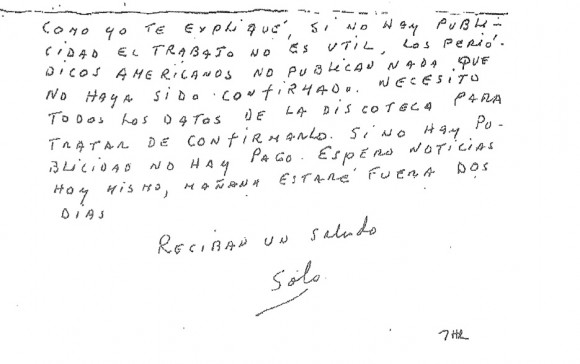 COMO YO TE EXPLIQUÉ, SI NO HAY PUBLI-
CIDAD EL TRABAJO NO ES UTIL, LOS PERIÓ-
DICOS AMERICANOS NO PUBLICAN NADA QUE
NO HAYA SIDO CONFIRMADO. NECESITO
TODOS LOS DATOS DE LA DISCOTECA PARA
TRATAR DE CONFIRMARLO. SI NO HAY PU-
BLICIDAD NO HAY PAGO. ESPERO NOTICIAS
HOY MISMO, MAÑANA ESTARÉ FUERA DOS
DIAS
RECIBAN UN Saludo
Solo